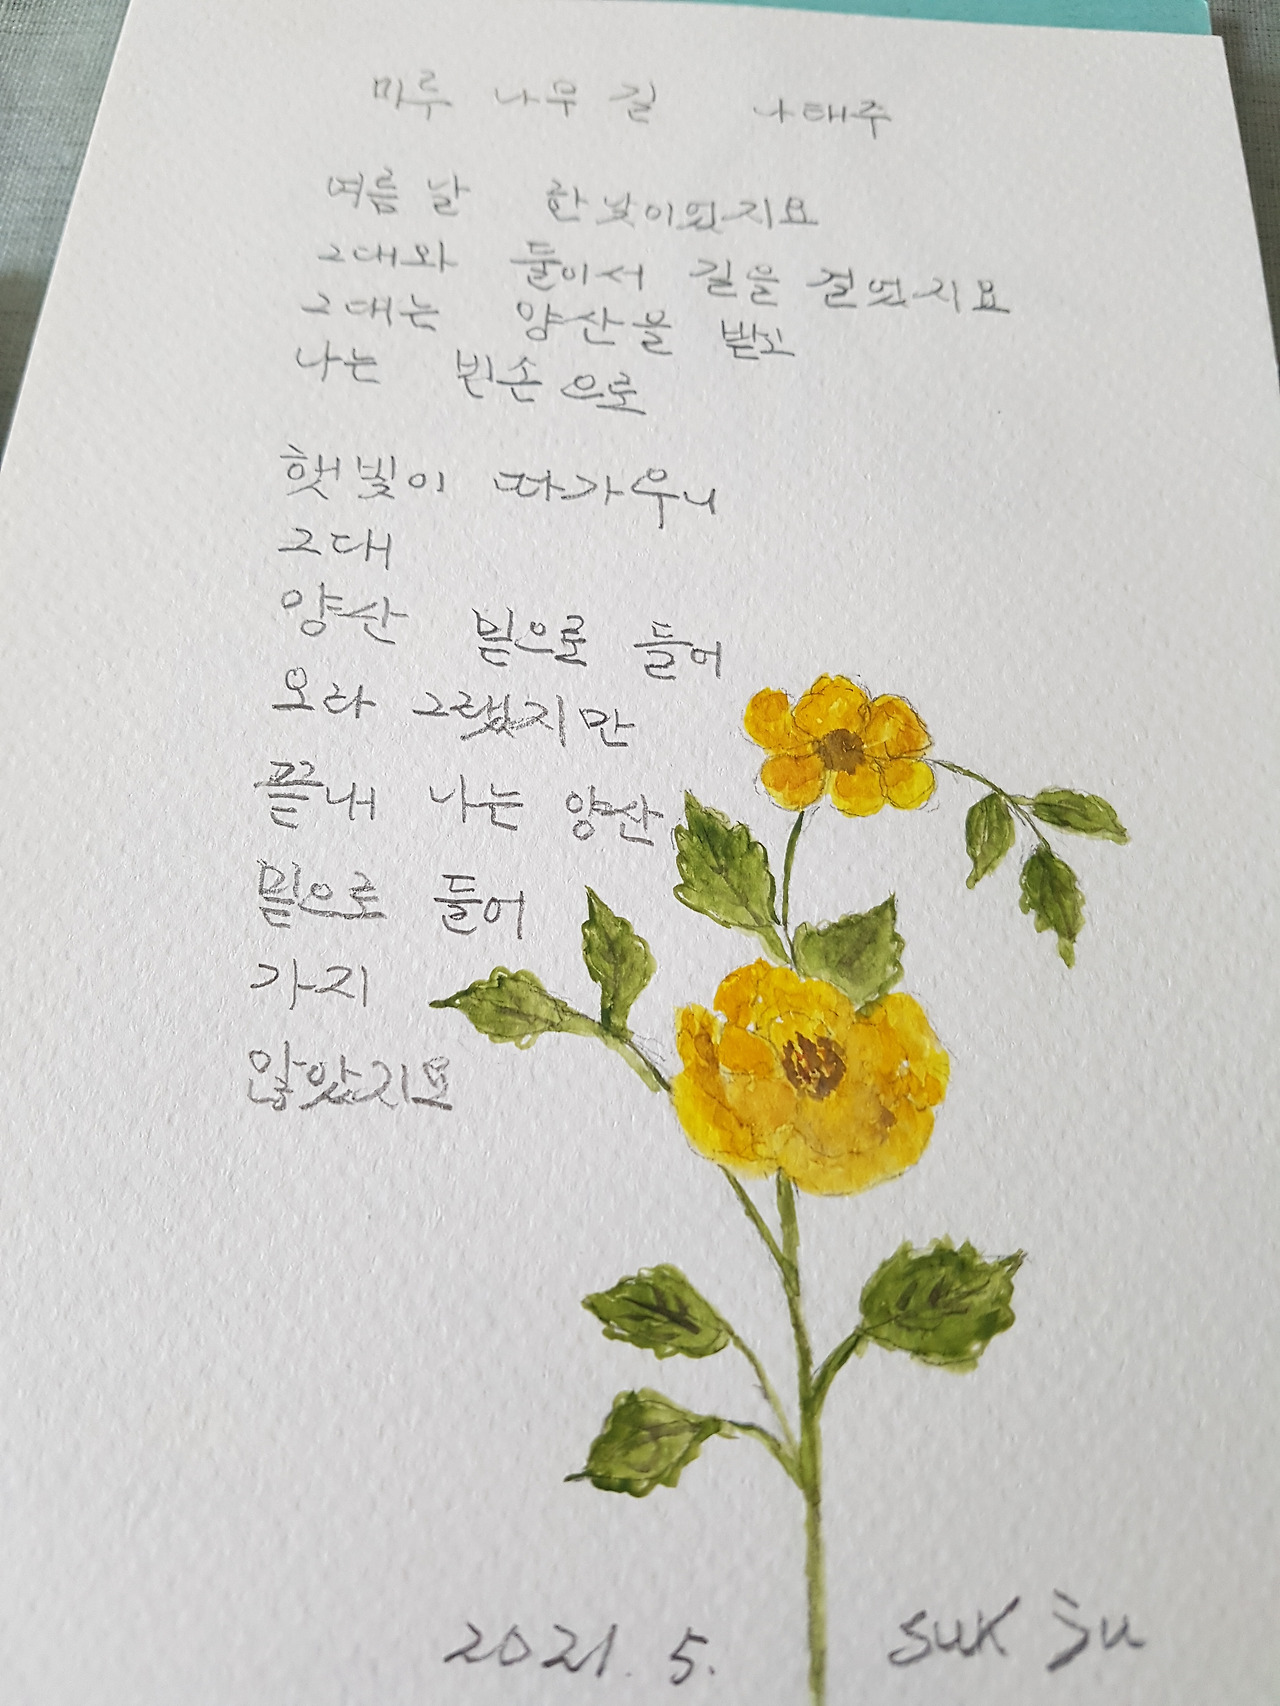 미루 나무 길 나태주
여름 날 한낮이었지요
그대와 둘이서 길을 걸었지요
그대는 양산을 받고
나는 빈손으로
햇빛이 따가우니
그대
양산 밑으로 들어
오라 그랬지만
끝내 나는 양산
밑으로 들어
가지
않았지요
2021. 5. suk Ju